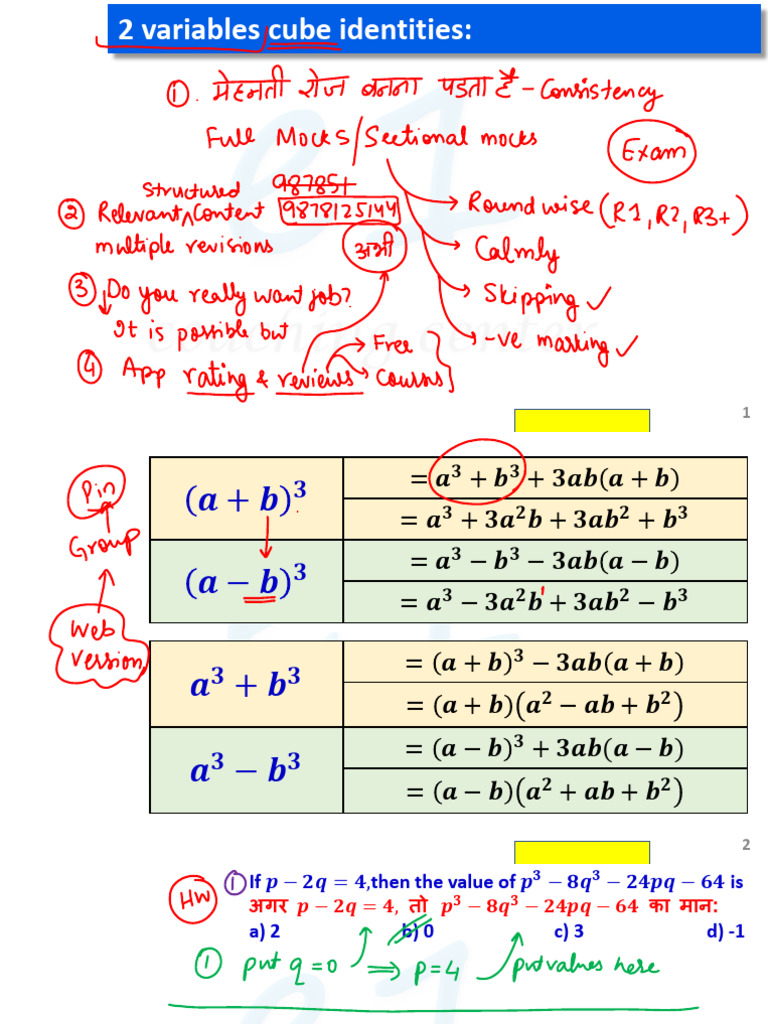 2 variables cube identities:
① . मेहनती रोज बनना पडता है - Consistency
Full Mocks / Sectional mocks
Exam
structured 987851
② Relevant ^ Content 9878125144
multiple revisions
अभी
→ Round wise (R1, R2, R3+)
→ Calmly
→ Skipping ✓
→ -ve marking ✓
③ Do you really want job?
It is possible but
④ App rating & reviews
→ Free
→ Courses
1
Pin
Group
Web
Version
(a + b)³
= a³ + b³ + 3ab(a + b)
= a³ + 3a²b + 3ab² + b³
(a − b)³
= a³ − b³ − 3ab(a − b)
= a³ − 3a²b + 3ab² − b³
a³ + b³
= (a + b)³ − 3ab(a + b)
= (a + b)(a² − ab + b²)
a³ − b³
= (a − b)³ + 3ab(a − b)
= (a − b)(a² + ab + b²)
2
HW
① If p − 2q = 4,then the value of p³ − 8q³ − 24pq − 64 is
अगर p − 2q = 4, तो p³ − 8q³ − 24pq − 64 का मान:
a) 2 b) 0 c) 3 d) -1
① put q = 0 ⇒ p = 4 put values here